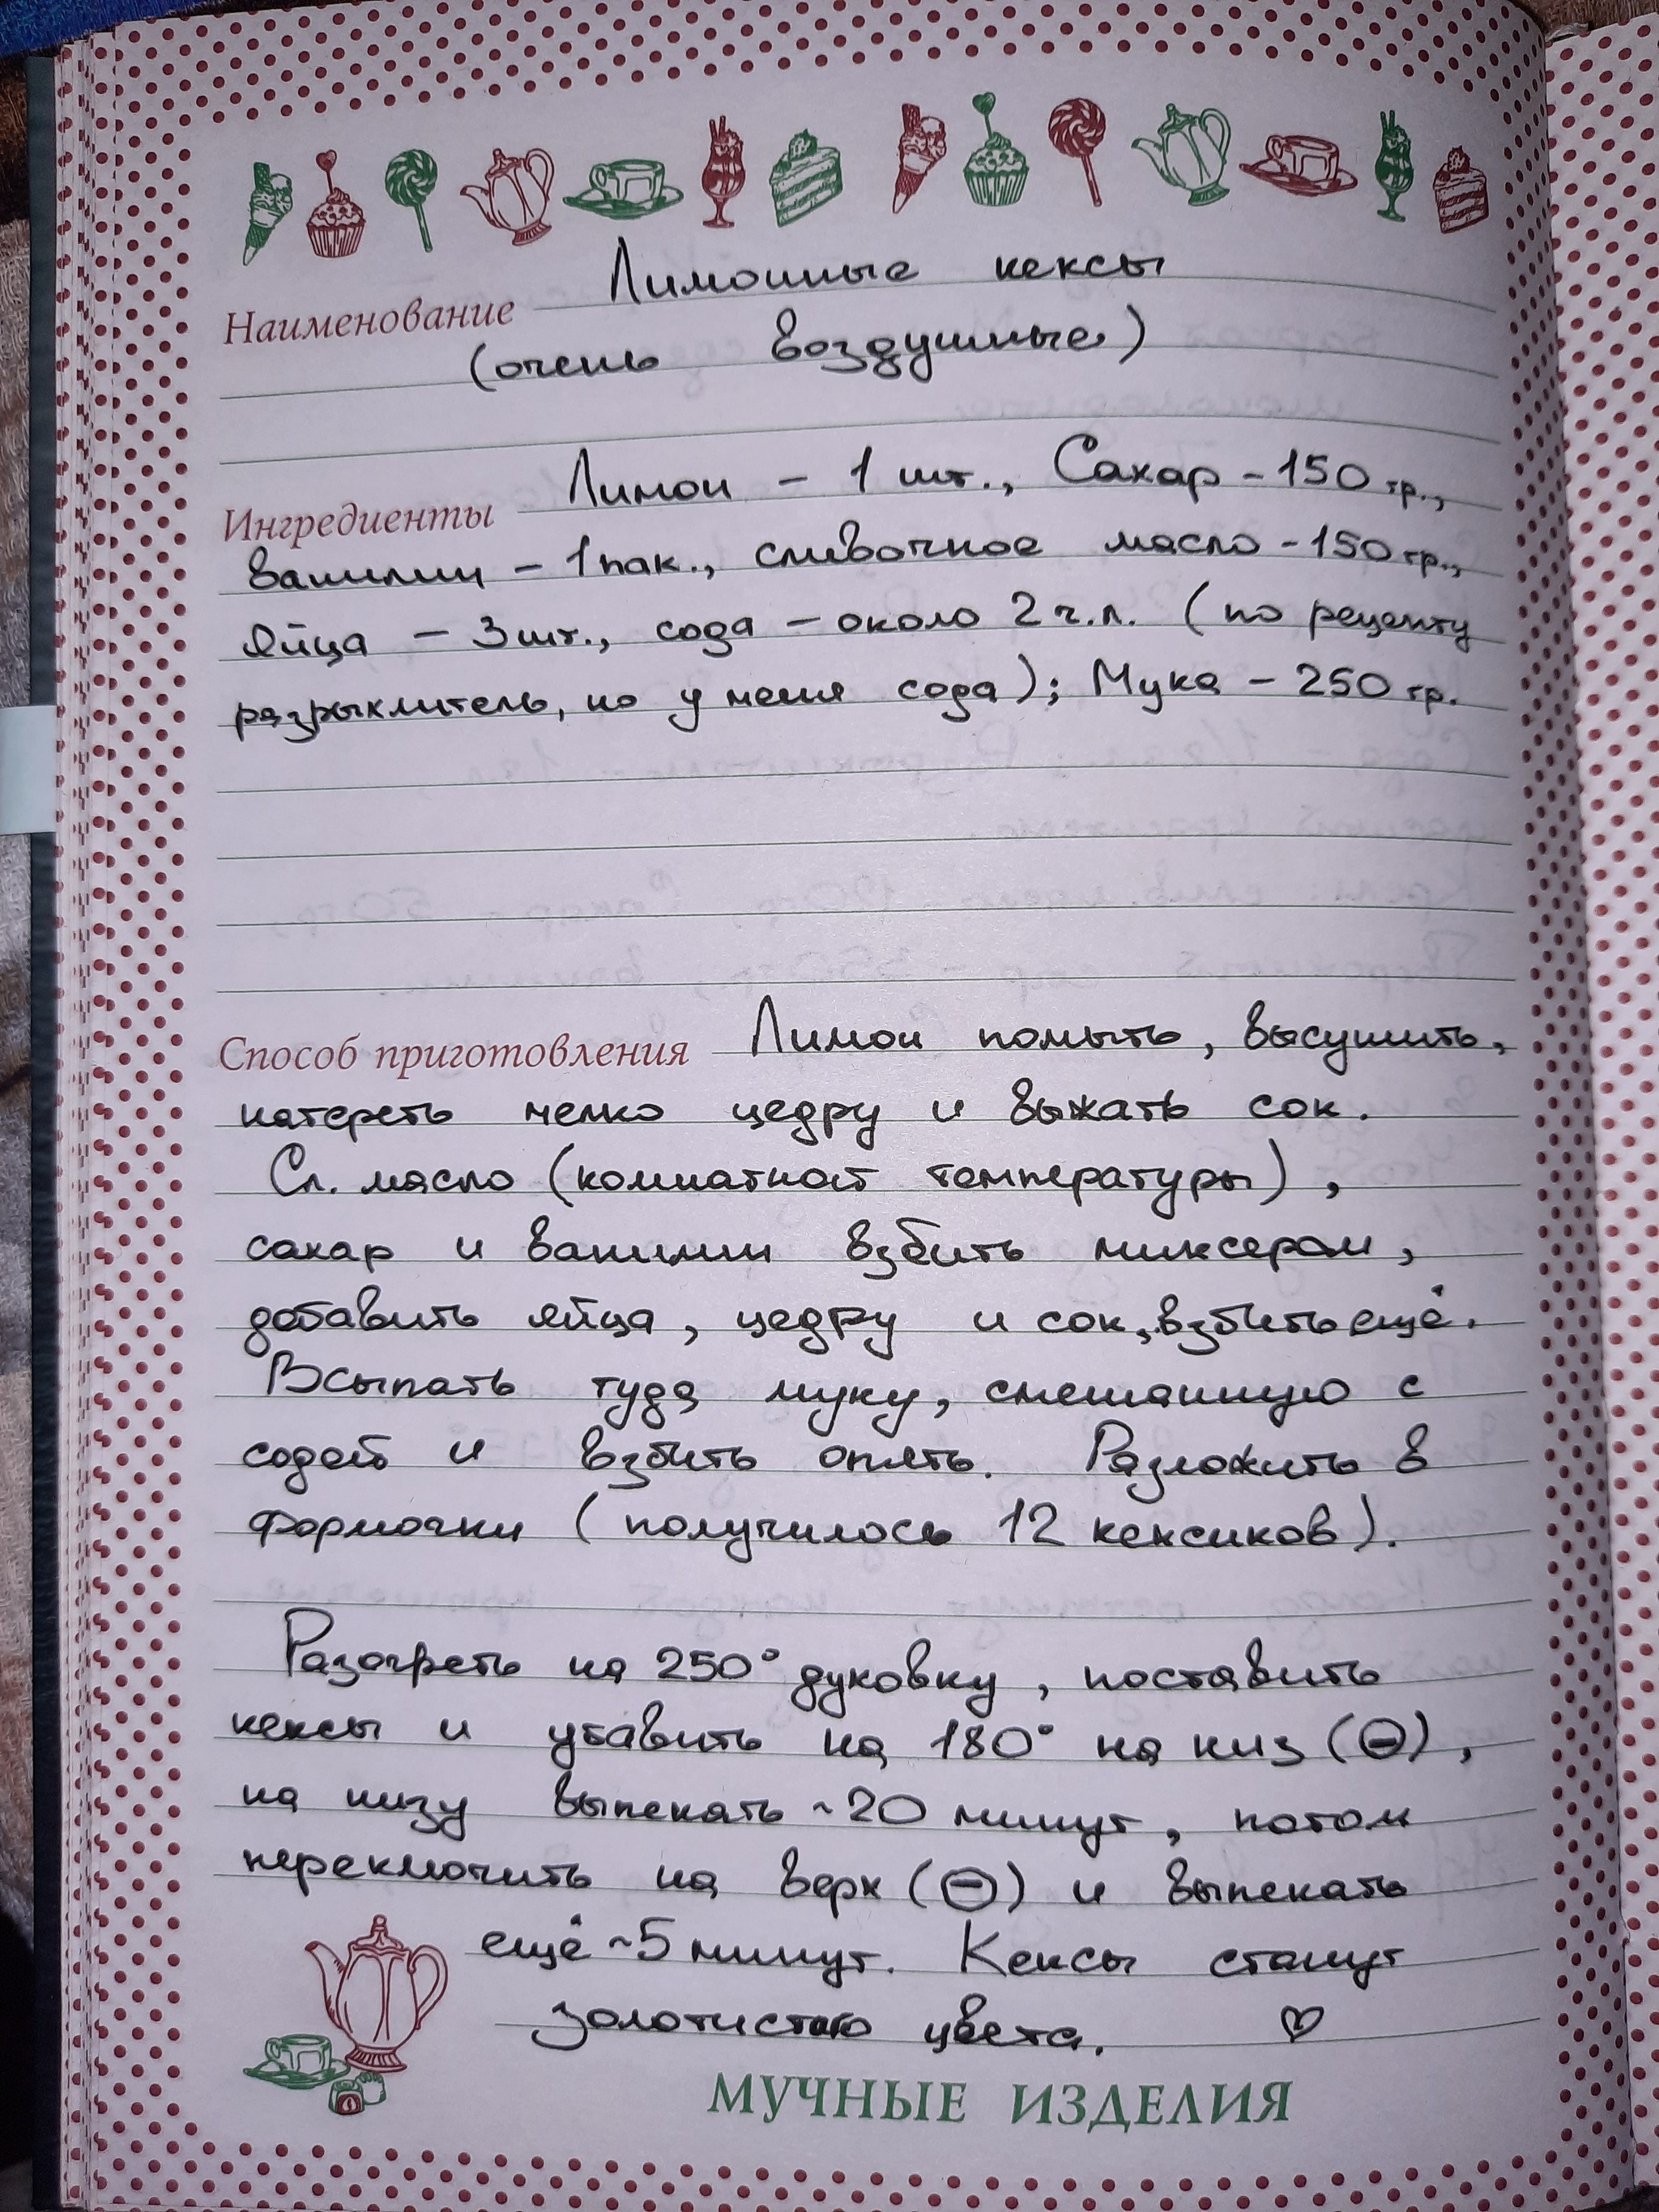 Наименование Лимонные кексы
(очень воздушные)
Ингредиенты Лимон - 1 шт., Сахар - 150 гр.,
ванилин - 1 пак., сливочное масло - 150 гр.,
яйца - 3 шт., сода - около 2 ч.л. (по рецепту
разрыхлитель, но у меня сода); Мука - 250 гр.
Способ приготовления Лимон помыть, высушить,
натереть мелко цедру и выжать сок.
Сл. масло (комнатной температуры),
сахар и ванилин взбить миксером,
добавить яйца, цедру и сок, взбить ещё.
Всыпать туда муку, смешанную с
содой и взбить опять. Разложить в
формочки (получилось 12 кексиков).
Разогреть на 250° духовку, поставить
кексы и убавить на 180° на низ (⊖),
на низу выпекать ~20 минут, потом
переключить на верх (⊖) и выпекать
ещё ~5 минут. Кексы станут
золотистого цвета. ♡
МУЧНЫЕ ИЗДЕЛИЯ